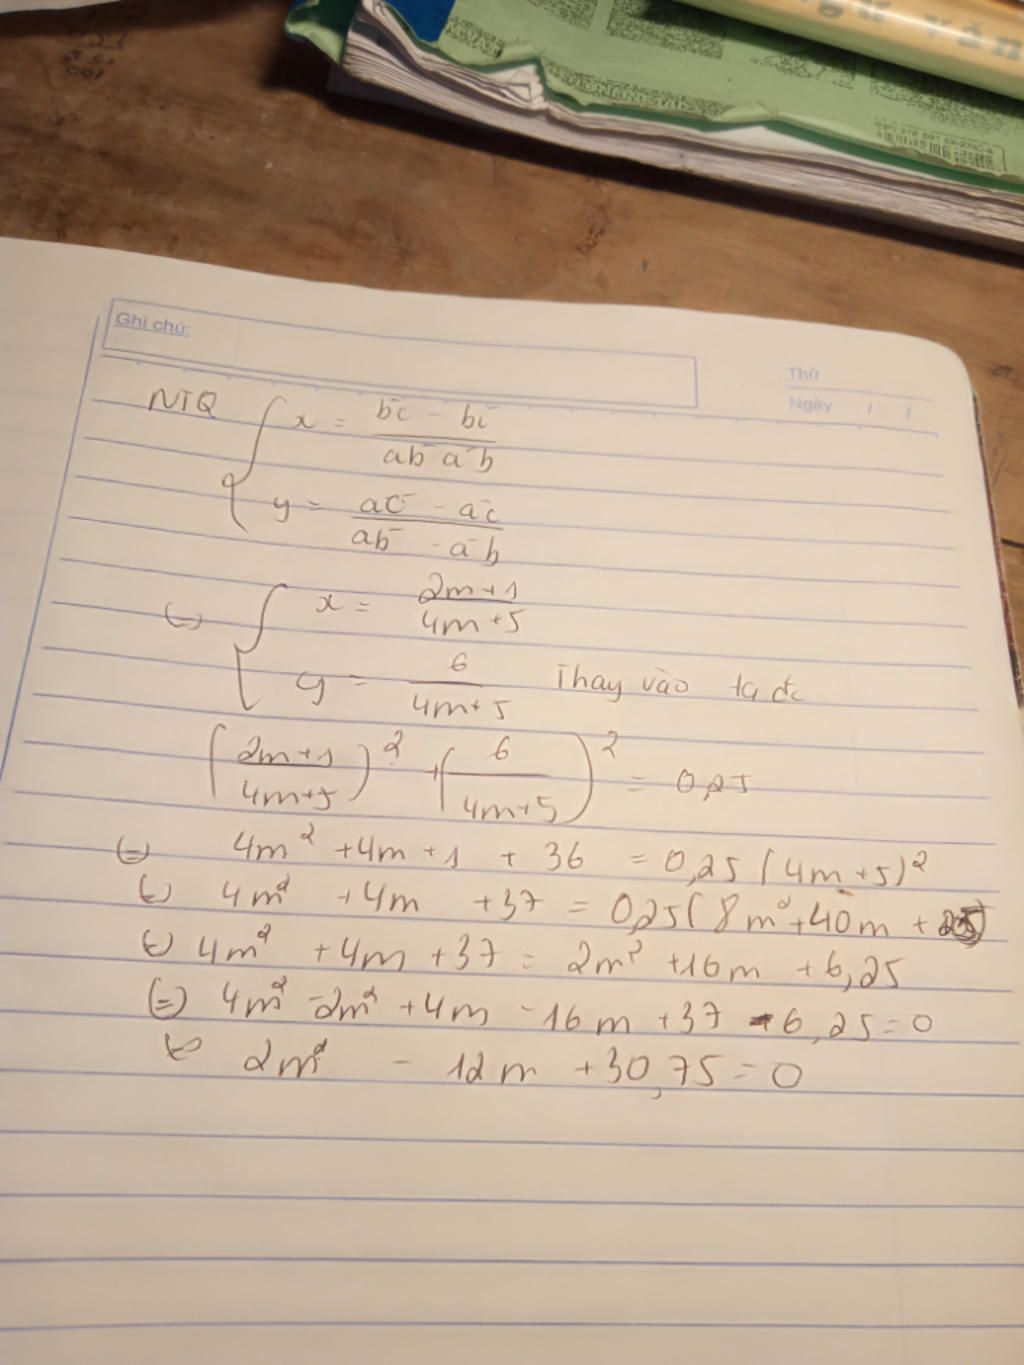 Ghi chú:
Thứ
Ngày / /
NTQ { x = (b̄c - bc̄) / (ab̄ ā b)
y = (ac̄ - āc) / (ab̄ - āb)
(=) { x = (2m+1) / (4m+5)
y = 6 / (4m+5) Thay vào ta đc
((2m+1) / (4m+5))² + (6 / (4m+5))² = 0,25
(=) 4m² + 4m + 1 + 36 = 0,25 (4m+5)²
(=) 4m² + 4m + 37 = 0,25 (8m² + 40m + 25)
(=) 4m² + 4m + 37 = 2m² + 16m + 6,25
(=) 4m² - 2m² + 4m - 16m + 37 - 6,25 = 0
(=) 2m² - 12m + 30,75 = 0